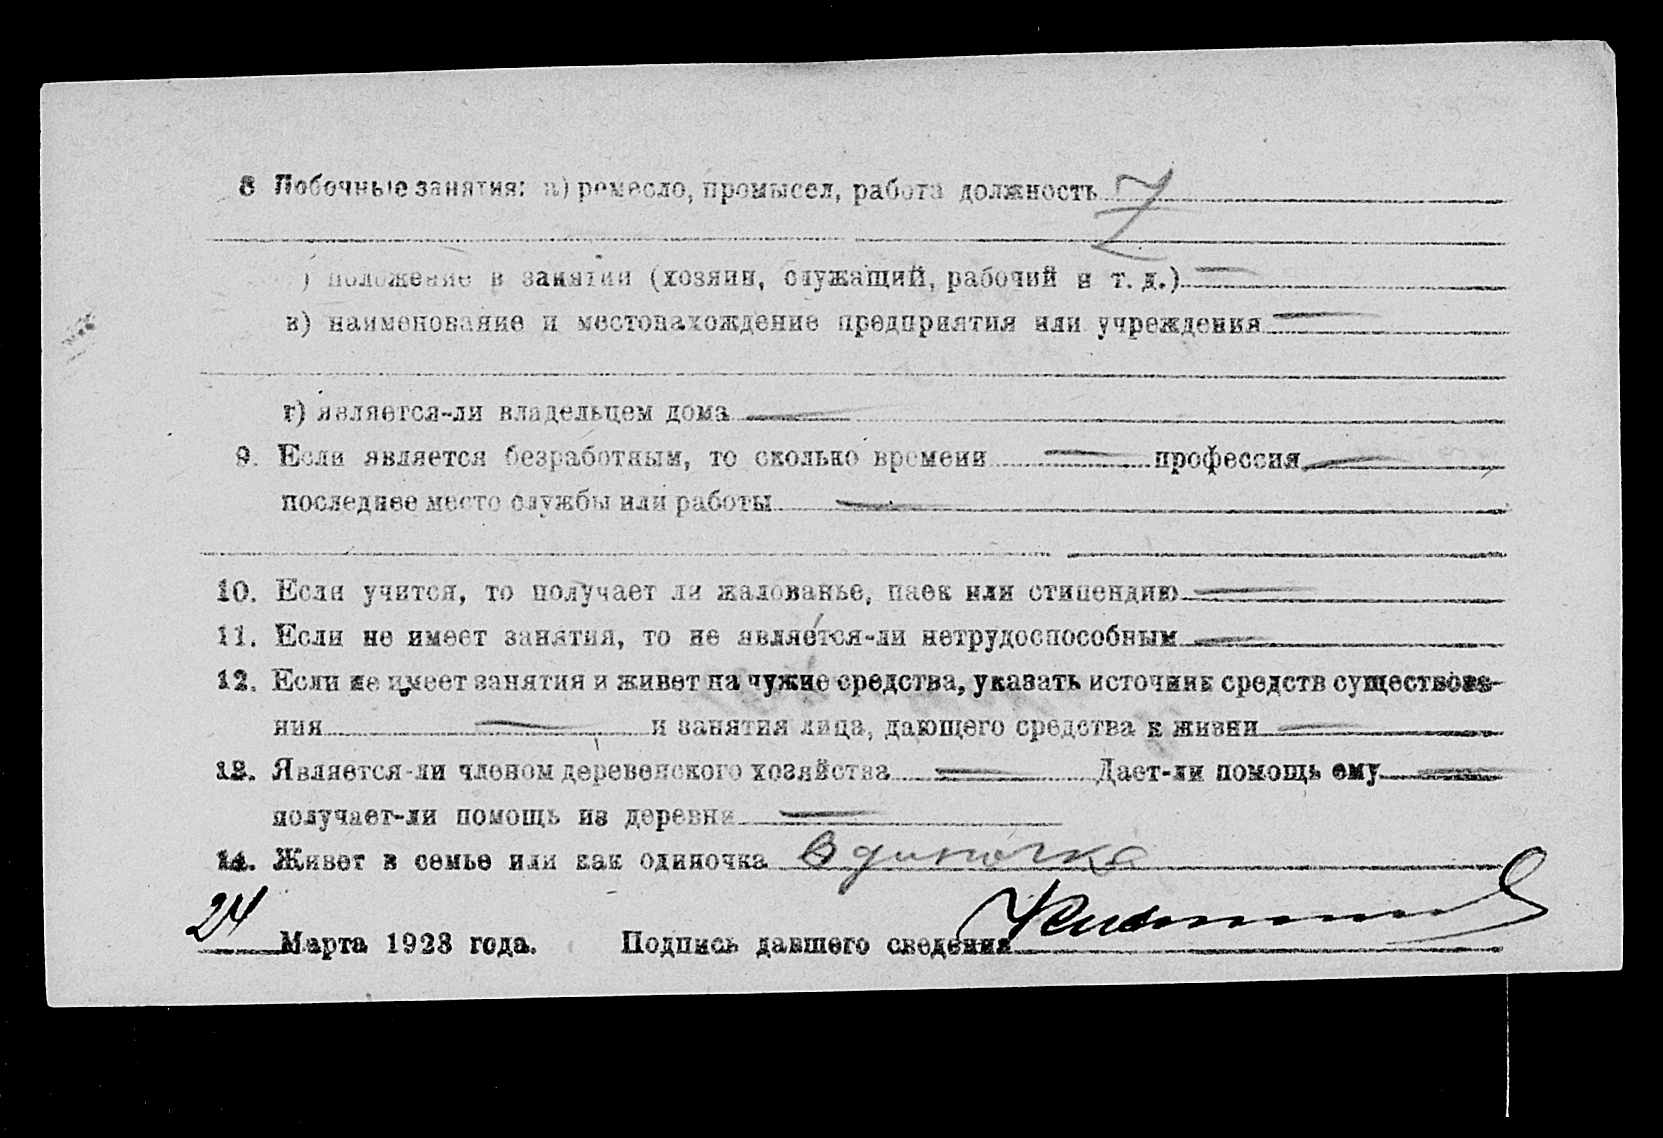 8 Побочные занятия: а) ремесло, промысел, работа должность
) положение в занятии (хозяин, служащий, рабочий и т. д.)
в) наименование и местонахождение предприятия или учреждения
г) является-ли владельцем дома
9. Если является безработным, то сколько времени профессия
последнее место службы или работы
10. Если учится, то получает ли жалованье, паек или стипендию
11. Если не имеет занятия, то не является-ли нетрудоспособным
12. Если не имеет занятия и живет на чужие средства, указать источник средств существова-
ния и занятия лица, дающего средства к жизни
13. Является-ли членом деревенского хозяйства Дает-ли помощь ему
получает-ли помощь из деревни
14. Живет в семье или как одиночка Одиночка
24 Марта 1923 года. Подпись давшего сведения